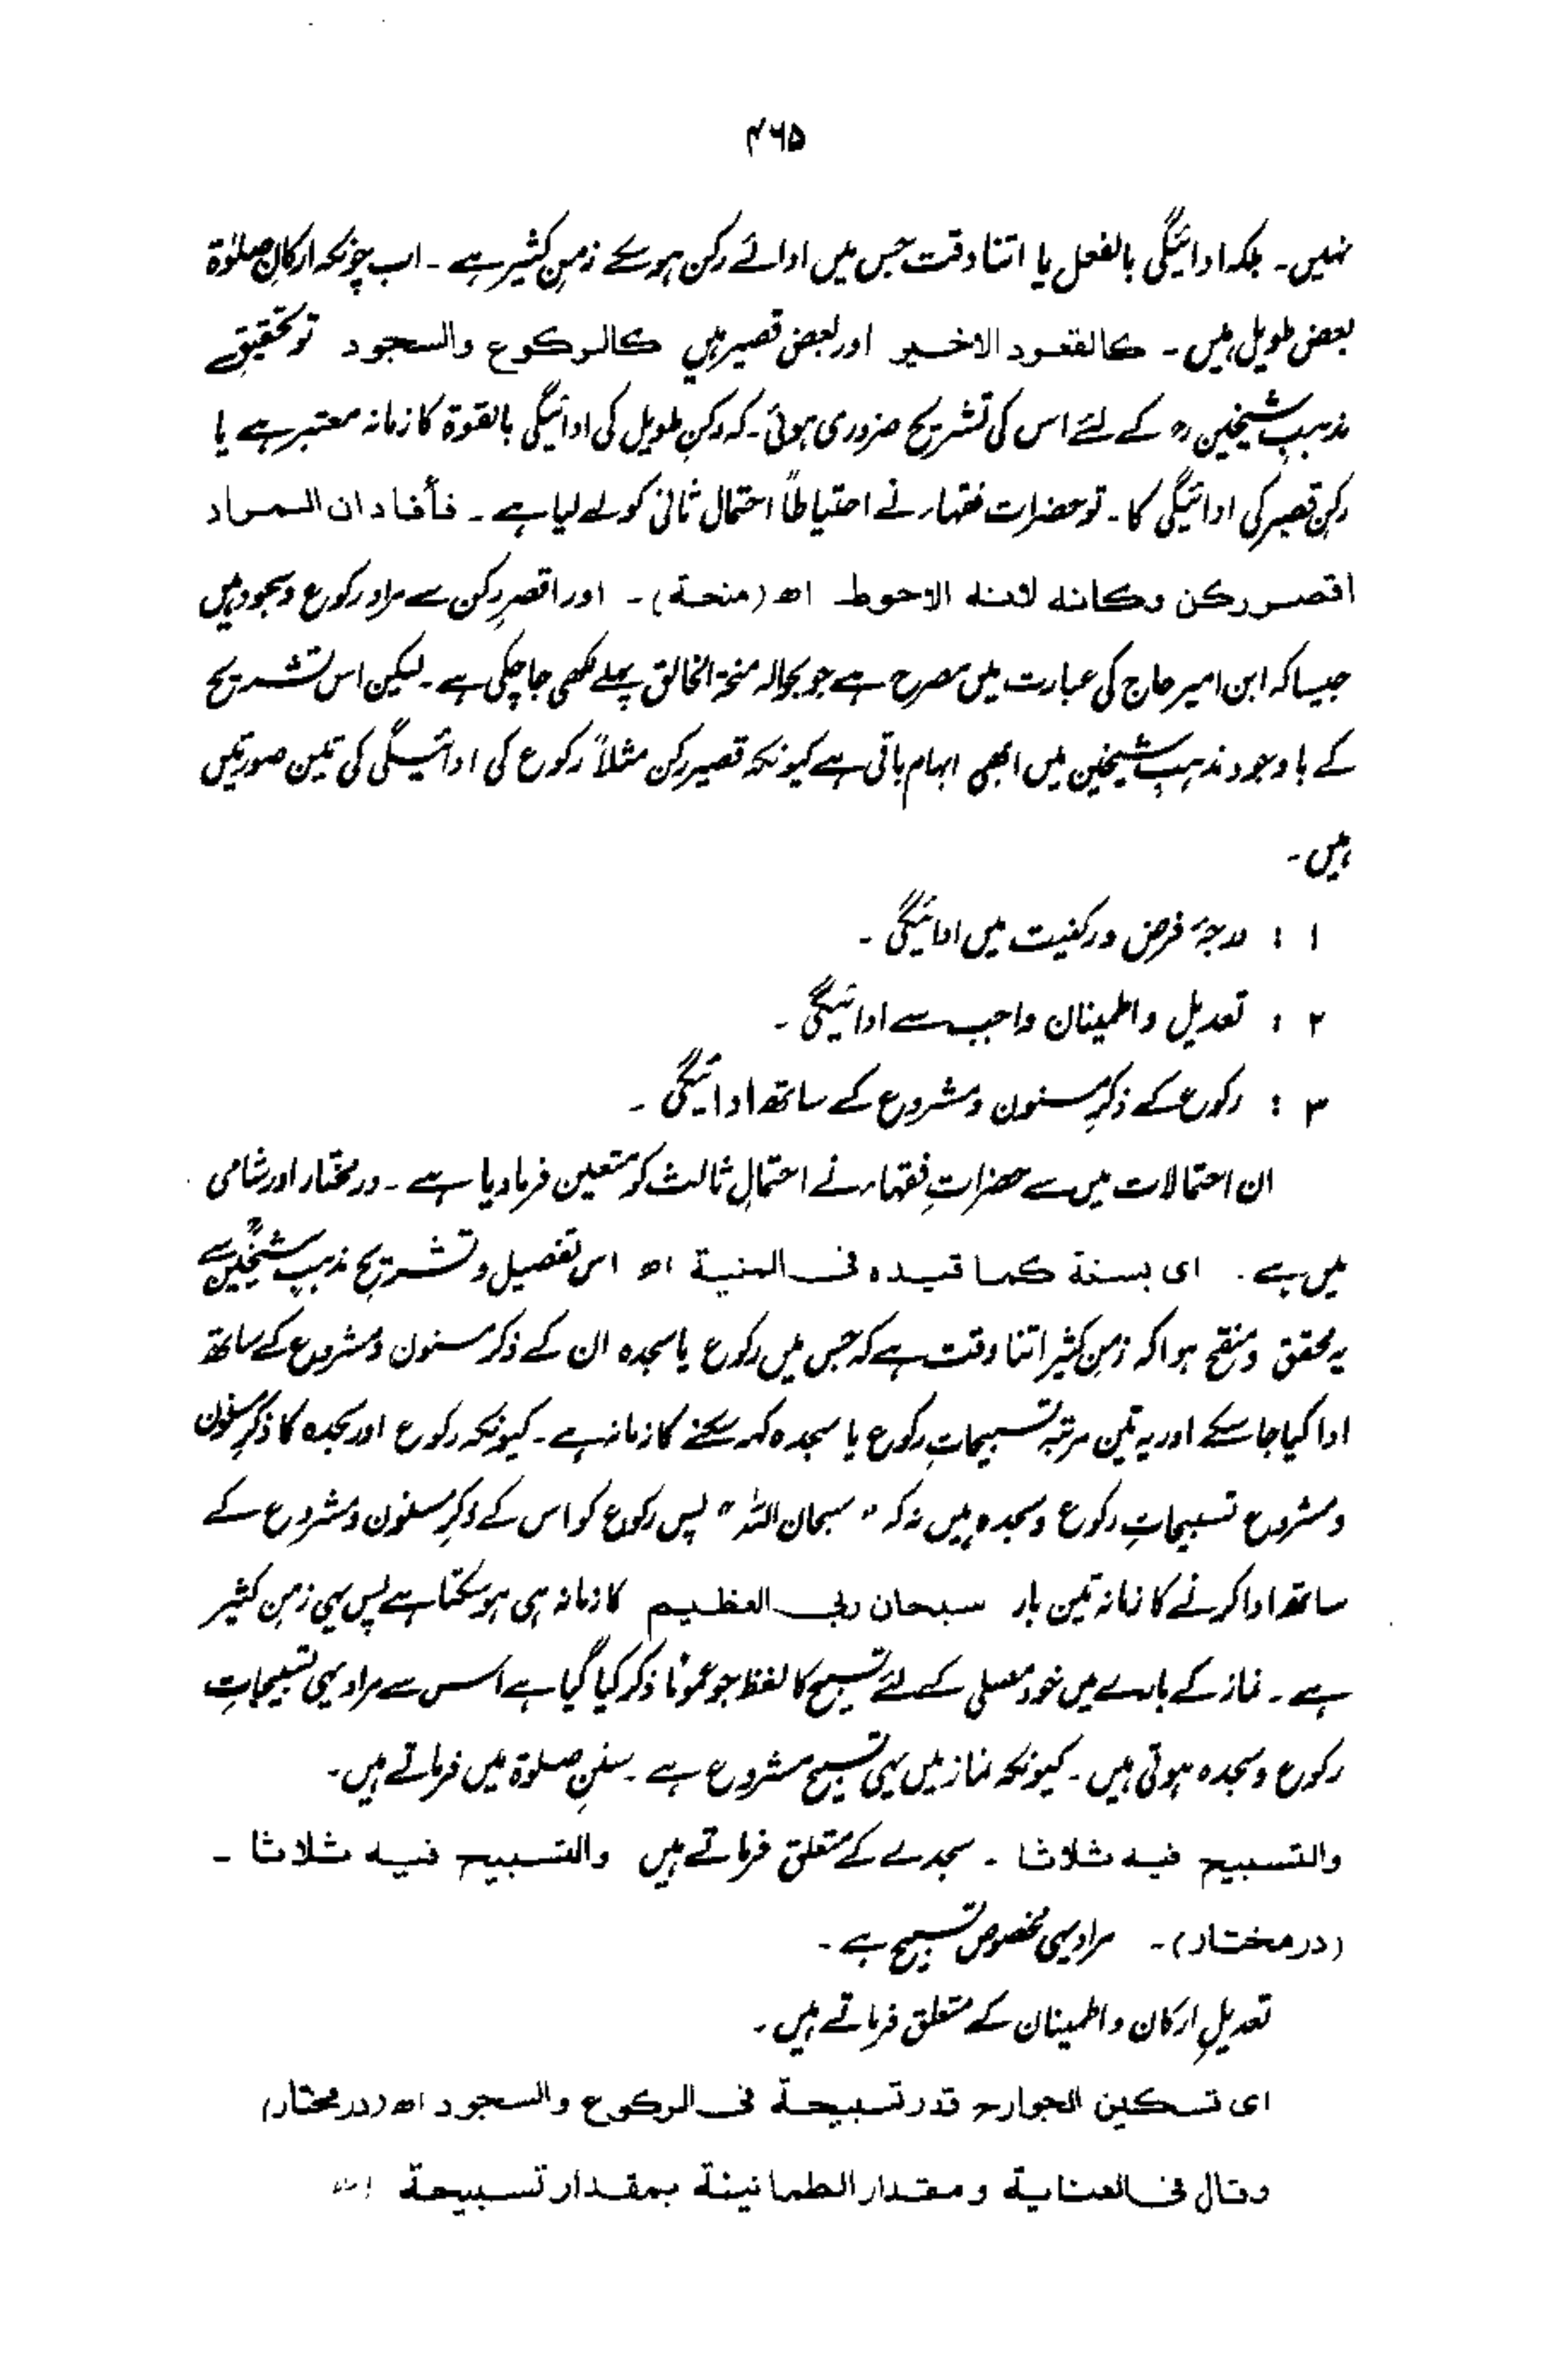 ۴۶۵
نہیں۔ بلکہ ادائیگی بالفعل یا اتنا وقت جس میں ادائے رکن ہو سکے زمنِ کثیر ہے۔ اب چونکہ ارکانِ صلوٰۃ
بعض طویل ہیں۔ کالقعود الاخیر اور بعض قصیر ہیں کالرکوع والسجود تو تحقیقِ
مذہبِ شیخینؒ کے لئے اس کی تشریح ضروری ہوئی۔ کہ رکنِ طویل کی ادائیگی بالقوۃ کا زمانہ معتبر ہے یا
رکنِ قصیر کی ادائیگی کا۔ تو حضرات فقہاء نے احتیاطاً احتمال ثانی کو لے لیا ہے۔ فأفاد ان المراد
اقصر رکن وکانه لانه الاحوط اھ (منحة)۔ اور اقصرِ رکن سے مراد رکوع و سجود ہیں
جیسا کہ ابن امیر حاج کی عبارت میں مصرح ہے جو بحوالہ منحۃ الخالق پہلے لکھی جا چکی ہے۔ لیکن اس تشریح
کے باوجود مذہبِ شیخین میں ابھی ابہام باقی ہے کیونکہ قصیر رکن مثلاً رکوع کی ادائیگی کی تین صورتیں
ہیں۔
۱ : درجۂ فرض و رکنیت میں ادائیگی۔
۲ : تعدیل و اطمینان واجب سے ادائیگی۔
۳ : رکوع کے ذکرِ مسنون و مشروع کے ساتھ ادائیگی۔
ان احتمالات میں سے حضراتِ فقہاء نے احتمالِ ثالث کو متعین فرما دیا ہے۔ درمختار اور شامی
میں ہے۔ ای بسنة کما قیدہ فی المنیة اھ اس تفصیل و تشریح مذہبِ شیخینؒ سے
یہ محقق و منقح ہوا کہ زمنِ کثیر اتنا وقت ہے کہ جس میں رکوع یا سجدہ ان کے ذکر مسنون و مشروع کے ساتھ
ادا کیا جا سکے اور یہ تین مرتبہ تسبیحاتِ رکوع یا سجدہ کہہ سکنے کا زمانہ ہے۔ کیونکہ رکوع اور سجدہ کا ذکرِ مسنون
و مشروع تسبیحاتِ رکوع و سجدہ ہیں نہ کہ "سبحان اللہ" پس رکوع کو اس کے ذکرِ مسنون و مشروع کے
ساتھ ادا کرنے کا زمانہ تین بار سبحان ربی العظیم کا زمانہ ہی ہو سکتا ہے پس یہی زمنِ کثیر
ہے۔ نماز کے بارے میں خود مصلی کے لئے تسبیح کا لفظ جو عموماً ذکر کیا گیا ہے اس سے مراد یہی تسبیحاتِ
رکوع و سجدہ ہوتی ہیں۔ کیونکہ نماز میں یہی تسبیح مشروع ہے۔ سننِ صلوۃ میں فرماتے ہیں۔
والتسبیح فیه ثلاثا ۔ سجدے کے متعلق فرماتے ہیں والتسبیح فیه ثلاثا ۔
(درمختار)۔ مراد یہی مخصوص تسبیح ہے۔
تعدیلِ ارکان و اطمینان کے متعلق فرماتے ہیں۔
ای تسکین الجوارح قدر تسبیحة فی الرکوع والسجود اھ (درمختار)
وقال فی العنایة ومقدار الطمانینة بمقدار تسبیحة اھ